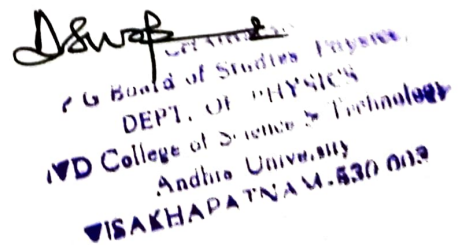 P G Board of Studies Physics,
DEPT. OF PHYSICS
College of Science & Technology
Andhra University
VISAKHAPATNAM-530 003